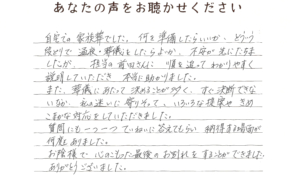 あなたの声をお聴かせください
自宅での家族葬でした。何を準備したらいいか、どういう
段どりで通夜・葬儀をしたらよいか、不安が先にたちま
したが、担当の皆さんに順を追ってわかりやすく
説明していただき、本当に助かりました。
また、葬儀にあたって決めることが多く、すぐ決断できな
い中、私の迷いに寄りそって、いろいろな提案やきめ
こまかな対応をしていただきました。
質問にも一つ一つていねいに答えてもらい、納得する場面が
何度もありました。
お陰様で心のこもった最後のお別れをすることができました。
ありがとうございました。